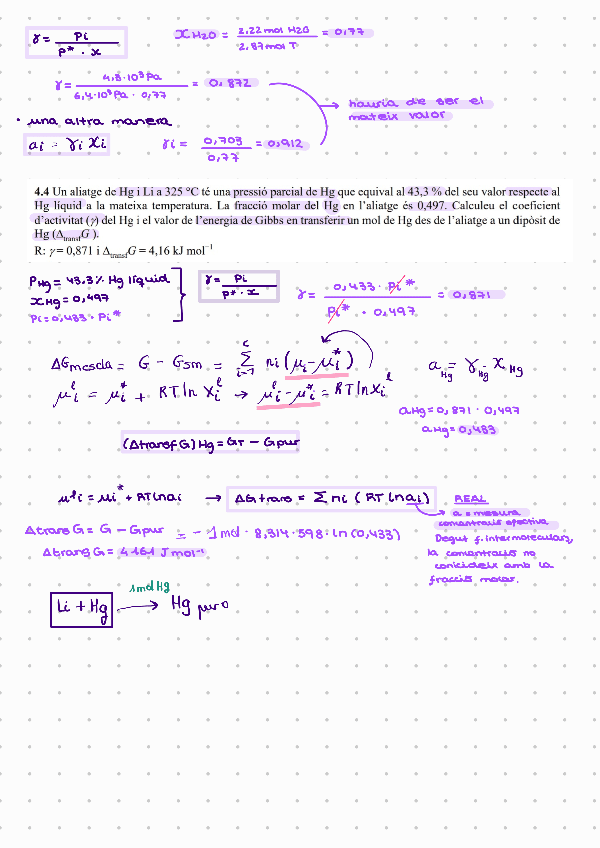 γ = Pi / P* · x
xH2O = 2,22 mol H2O / 2,87 mol T = 0,77
γ = 4,3·10³ Pa / 6,4·10³ Pa · 0,77 = 0,872
hauria de ser el
mateix valor
• una altra manera
ai = γi xi
γi = 0,703 / 0,77 = 0,912
4.4 Un aliatge de Hg i Li a 325 °C té una pressió parcial de Hg que equival al 43,3 % del seu valor respecte al
Hg líquid a la mateixa temperatura. La fracció molar del Hg en l'aliatge és 0,497. Calculeu el coeficient
d'activitat (γ) del Hg i el valor de l'energia de Gibbs en transferir un mol de Hg des de l'aliatge a un dipòsit de
Hg (ΔtransfG ).
R: γ = 0,871 i ΔtransfG = 4,16 kJ mol⁻¹
PHg = 43,3% Hg líquid
xHg = 0,497
Pi = 0,433 · Pi*
γ = Pi / P* · x
γ = 0,433 · Pi* / Pi* · 0,497 = 0,871
ΔGmescla = G − Gsm = Σ ni (μi − μi*)
c
i=1
aHg = γHg · xHg
μiˡ = μi* + RT ln xiˡ → μiˡ − μi* = RT ln xiˡ
aHg = 0,871 · 0,497
aHg = 0,433
(Δtransf G)Hg = GT − Gpur
μˡi = μi* + RT ln ai → ΔG trans = Σ ni ( RT ln ai )
REAL
a = mesura
concentració efectiva
Degut f. intermoleculars,
la concentració no
coincideix amb la
fracció molar.
Δtrans G = G − Gpur = − 1 mol · 8,314 · 598 · ln (0,433)
Δtrans G = 4161 J mol⁻¹
1 mol Hg
Li + Hg → Hg puro